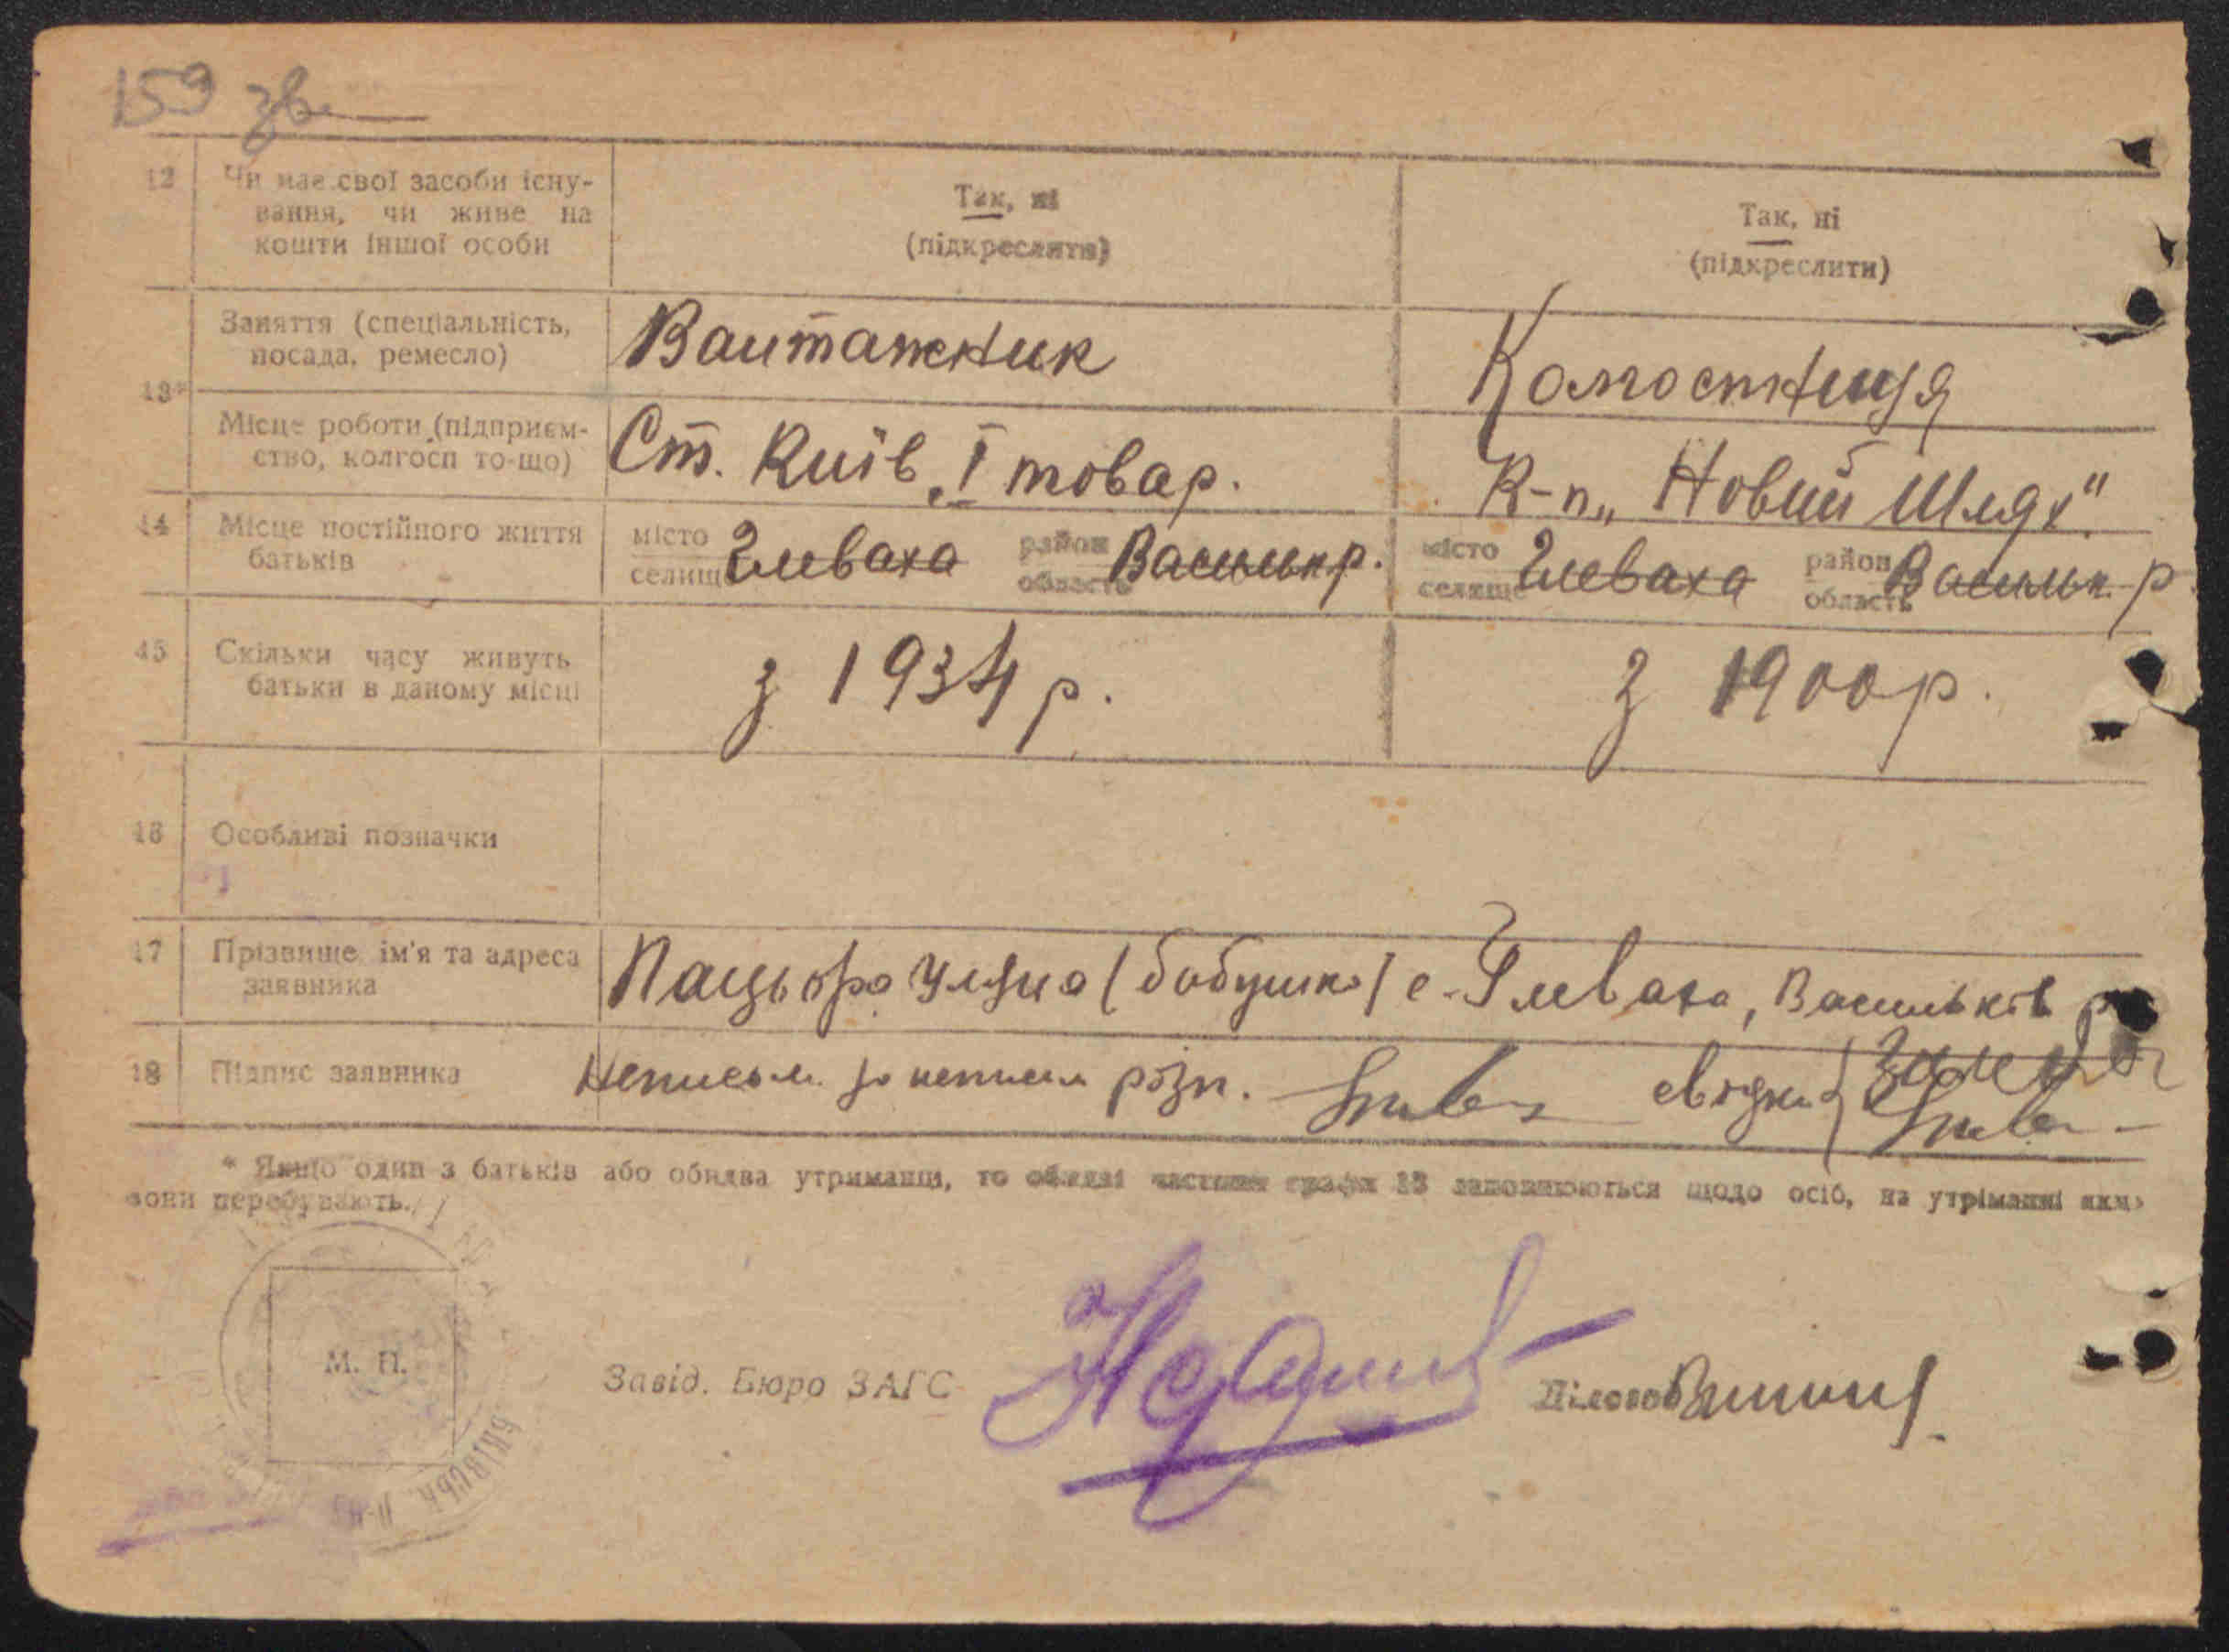 159 зв.
12 Чи має свої засоби існу-
вання, чи живе на
кошти іншої особи
Так, ні
(підкреслити)
Так, ні
(підкреслити)
13*
Заняття (спеціальність,
посада, ремесло)
Вантажник
Колгоспниця
Місце роботи (підприєм-
ство, колгосп то-що)
Ст. Київ І товар.
К-п „Новий Шлях"
14 Місце постійного життя
батьків
місто
селище
Глеваха
район
область
Васильк р.
місто
селище
Глеваха
район
область
Васильк. р
15 Скільки часу живуть
батьки в даному місці
з 1934 р.
з 1900 р.
16 Особливі позначки
17 Прізвище, ім'я та адреса
заявника
Пацьора Уляна (бабушка) с. Глеваха, Васильків р
18 Підпис заявника
Неписьм. за неписьм розп. свідки
* Якщо один з батьків або обидва утриманці, то обидві частини графи 13 заповнюються щодо осіб, на утриманні яких
вони перебувають.
М. П.
Завід. Бюро ЗАГС
Діловод